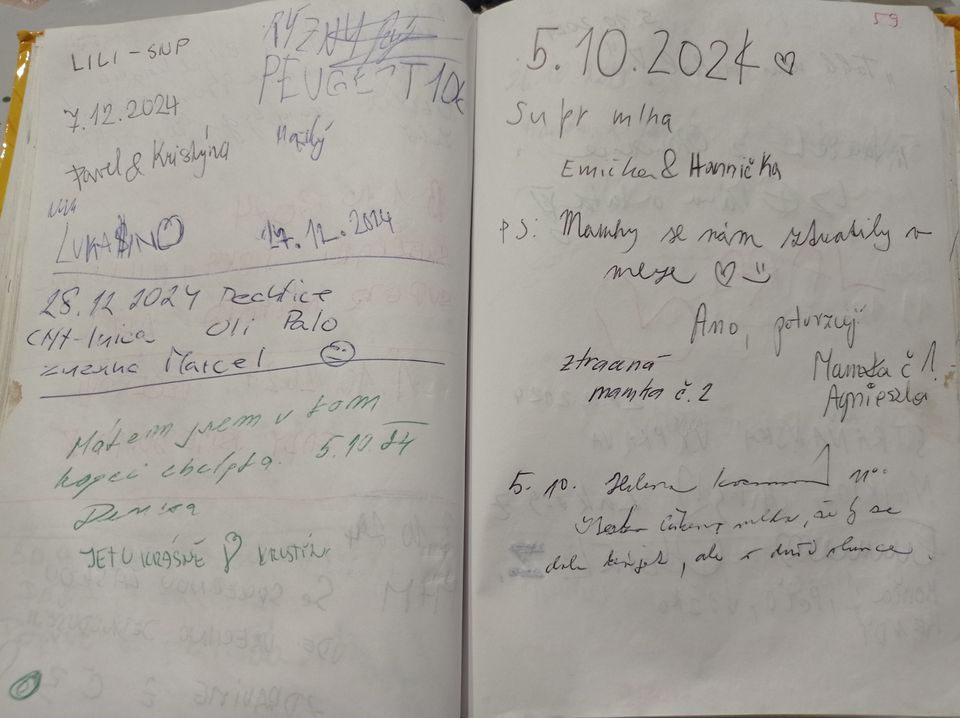 LILI - SNP
7.12.2024
Pavel & Kristýna
PEUGEOT
LUKA
17.12.2024
28.12 2024 Dechtice
Oli Palo
Zuzana Marcel
jsem v tom
kopci chcípla. 5.10.24
Denisa
JE TU KRÁSNĚ
59
5.10.2024 ♡
Supr mlha
Emička & Hannička
PS: Mamky se nám ztratily v
mlze ♡ :)
Ano, potvrzuji
ztracená Mamka č 1.
mamka č. 2 Agnieszka
5. 10. Helena 11⁰⁰
mlha, že by se
dala krájet, ale v duši slunce.